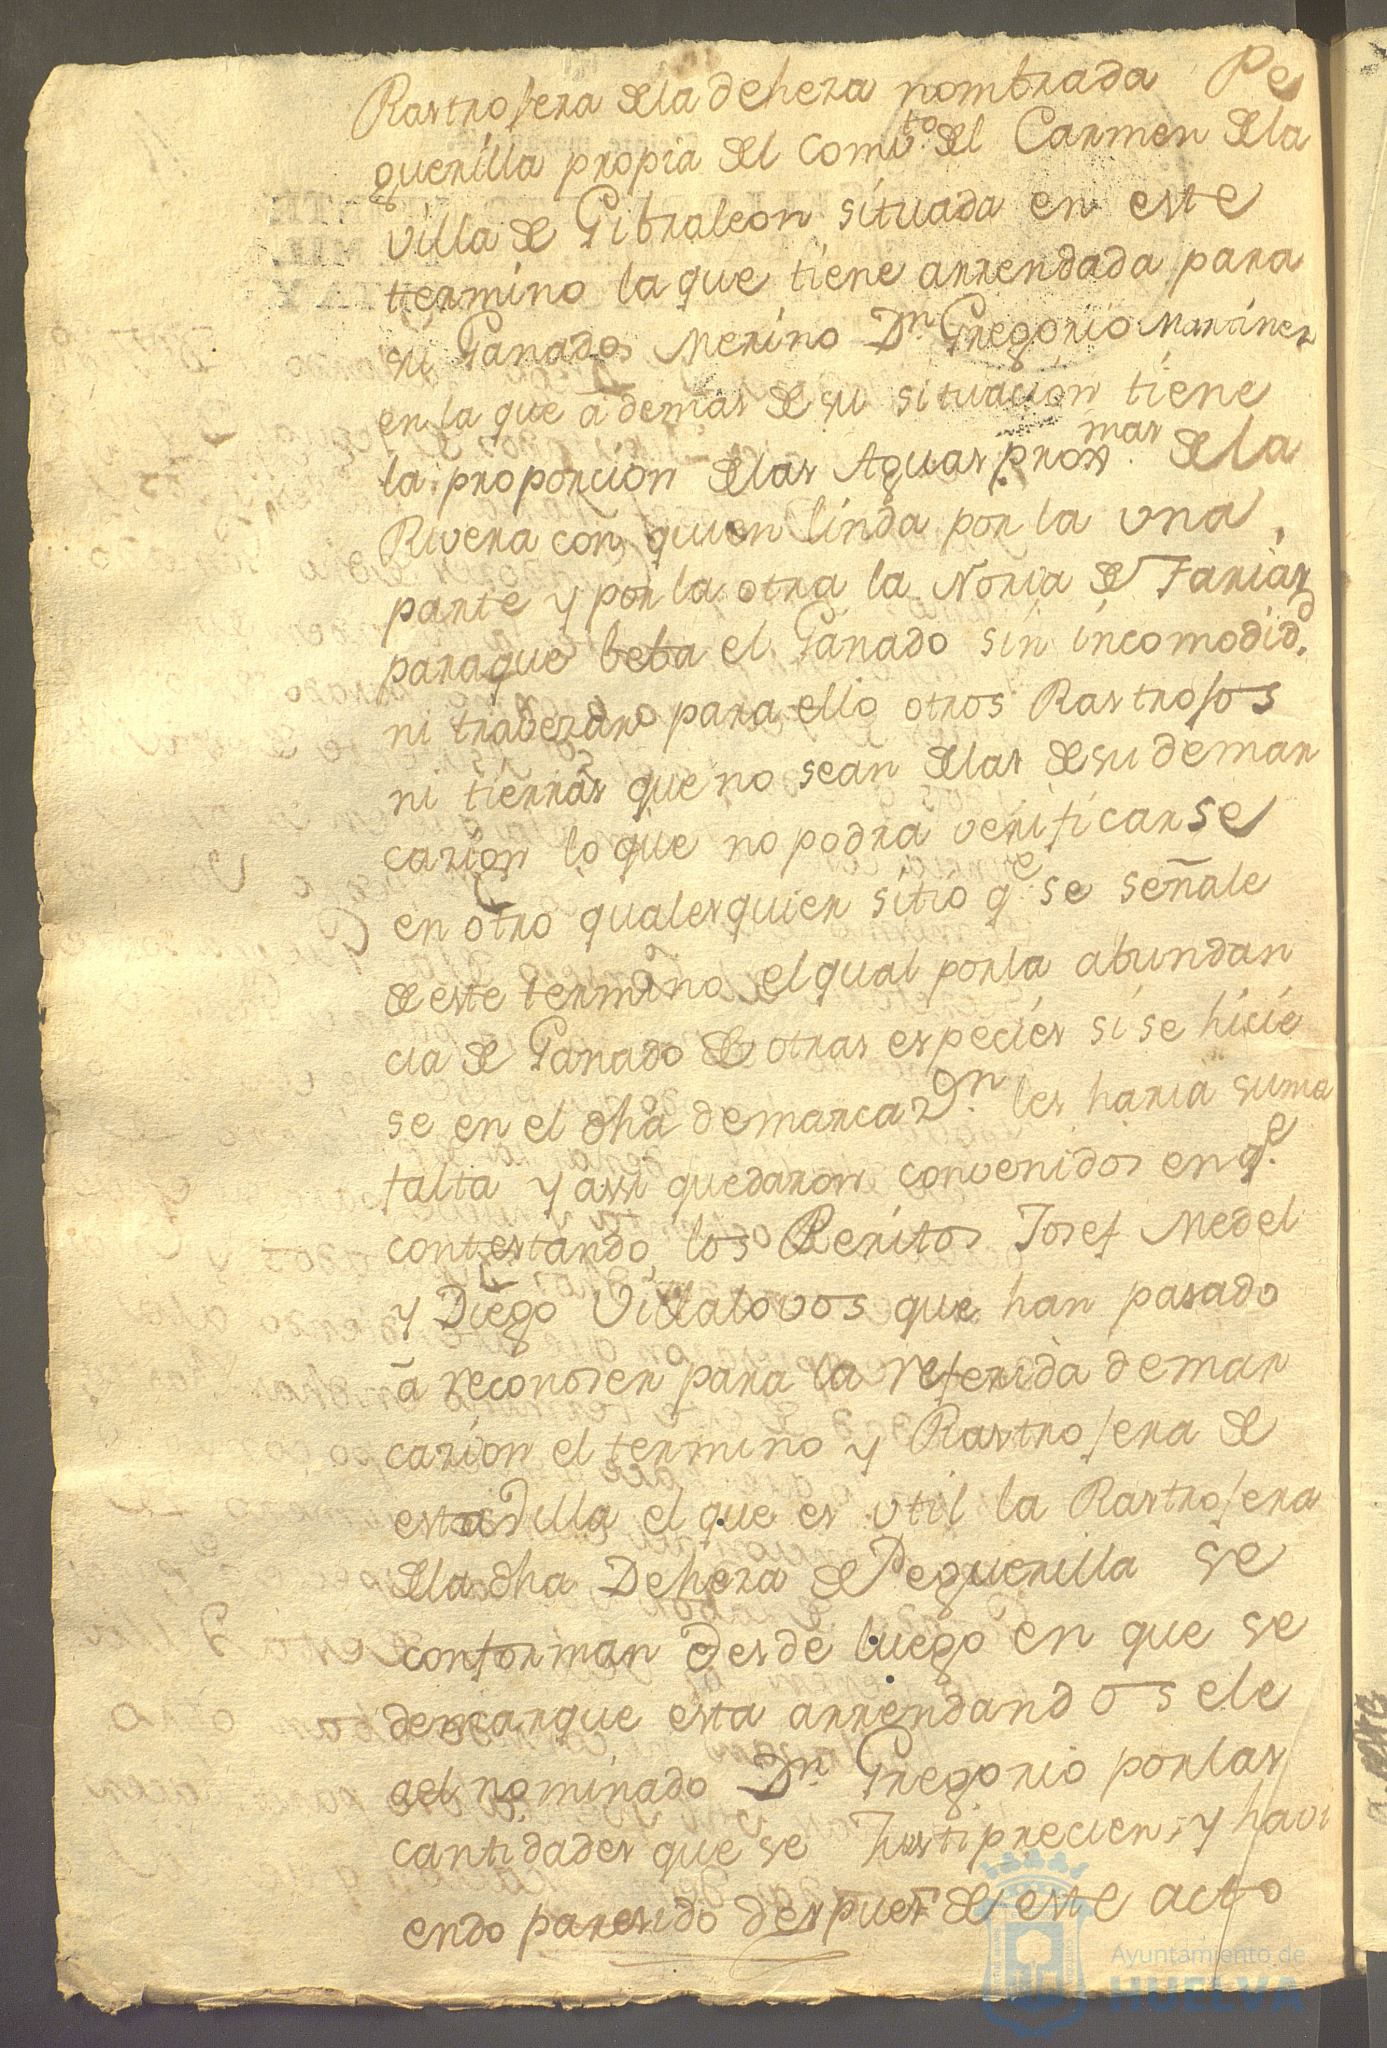 Rastrojera dela deheza nombrada Pe
guerilla propia del Combto. del Carmen dela
villa de Gibraleon situada en este
termino la que tiene arrendada para
su Ganados Merino Dn. Gregorio Martinez
en la que ademas de su situacion tiene
la proporcion delas Aguas proxmas. dela
Rivera con quien linda por la una
parte y por la otra la Noria de Farias
paraque beba el Ganado sin incomodidd.
ni trabezar para ello otros Rastrojos
ni tierras que no sean delas de su demar
cazion lo que no podra verificarse
en otro qualesquier sitio qe se señale
de este termino el qual porla abundan
cia de Ganado de otras especies si se hicie
se en el dha demarcazn. les haria suma
falta y assi quedaron convenidos en qe.
contestando los Peritos Josef Medel
y Diego Villalovos que han pasado
â reconoser para la referida demar
cazion el termino y Rastrojera de
esta Villa el que es util la Rastrojera
dela dha Deheza de Peguerilla se
conforman desde luego en que se
demarque esta arrendandosele
ael nominado Dn. Gregorio porlas
cantidades que se Justiprecien, y havi
endo paresido despues de este acto
Ayuntamiento de
HUELVA